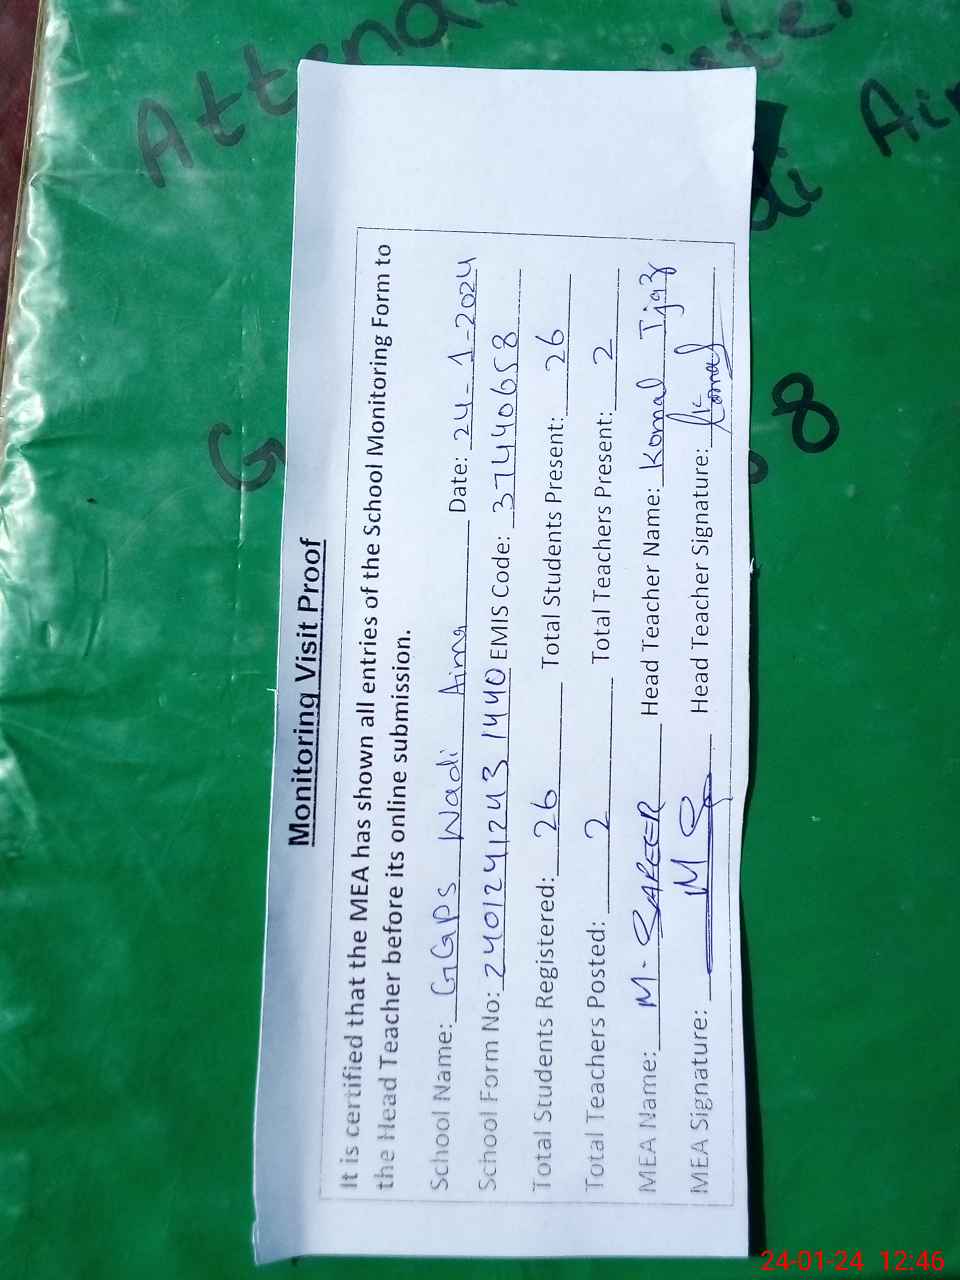 Monitoring Visit Proof
It is certified that the MEA has shown all entries of the School Monitoring Form to
the Head Teacher before its online submission.
School Name: GGPS Wadi Aima Date: 24-1-2024
School Form No: 24012412431440 EMIS Code: 37440658
Total Students Registered: 26 Total Students Present: 26
Total Teachers Posted: 2 Total Teachers Present: 2
MEA Name: M. SAFEER Head Teacher Name: Komal Ijaz
MEA Signature: MS Head Teacher Signature: Komal
24-01-24 12:46